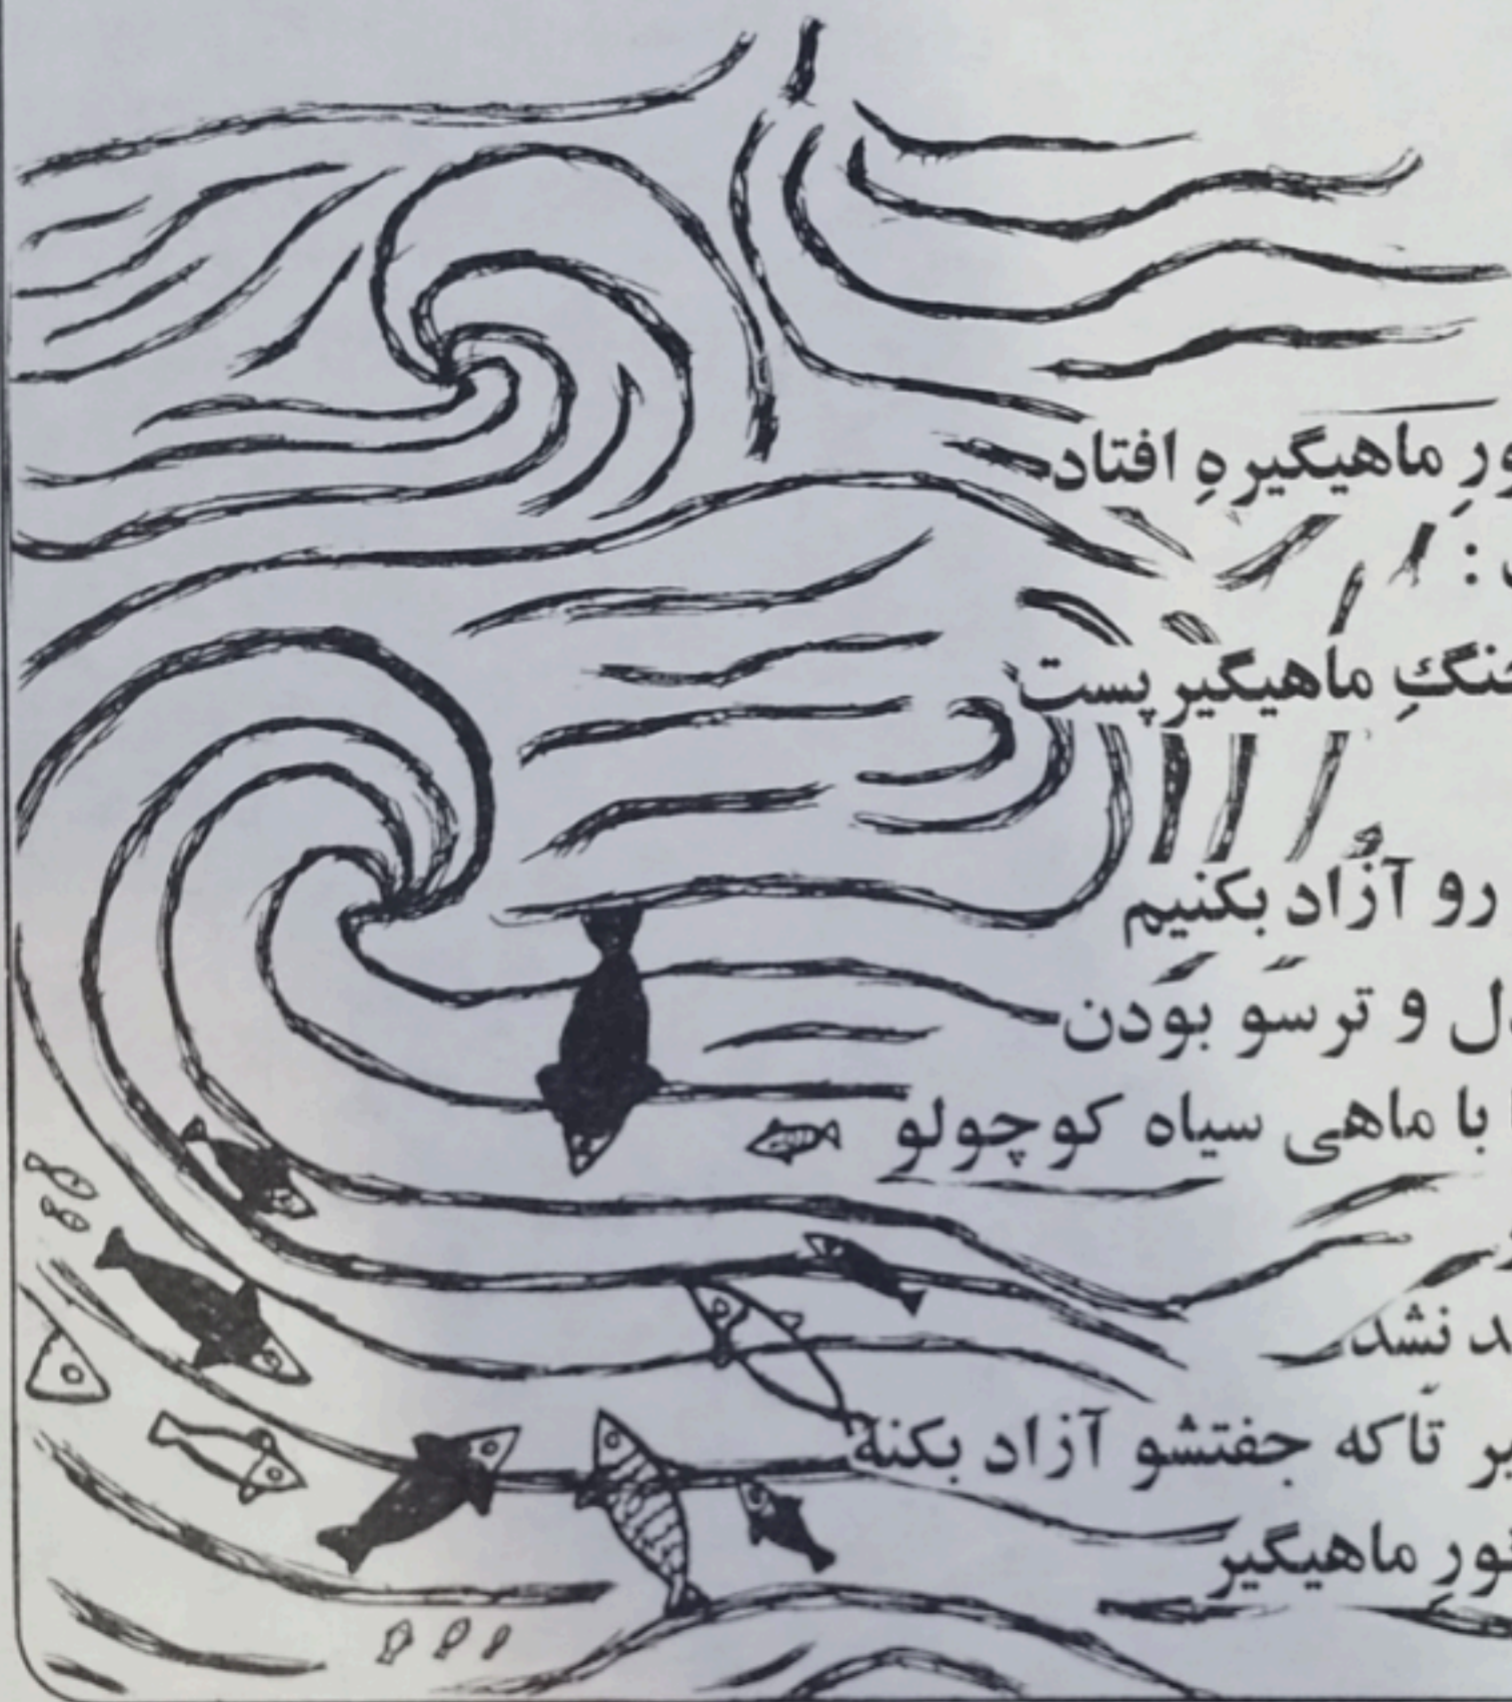 ماهیگیرهِ افتاد
:
ماهیگیر پست
رو آزاد بکنیم
و ترسو بودن
با ماهی سیاه کوچولو
نشد
تا که جفتشو آزاد بکنه
ماهیگیر